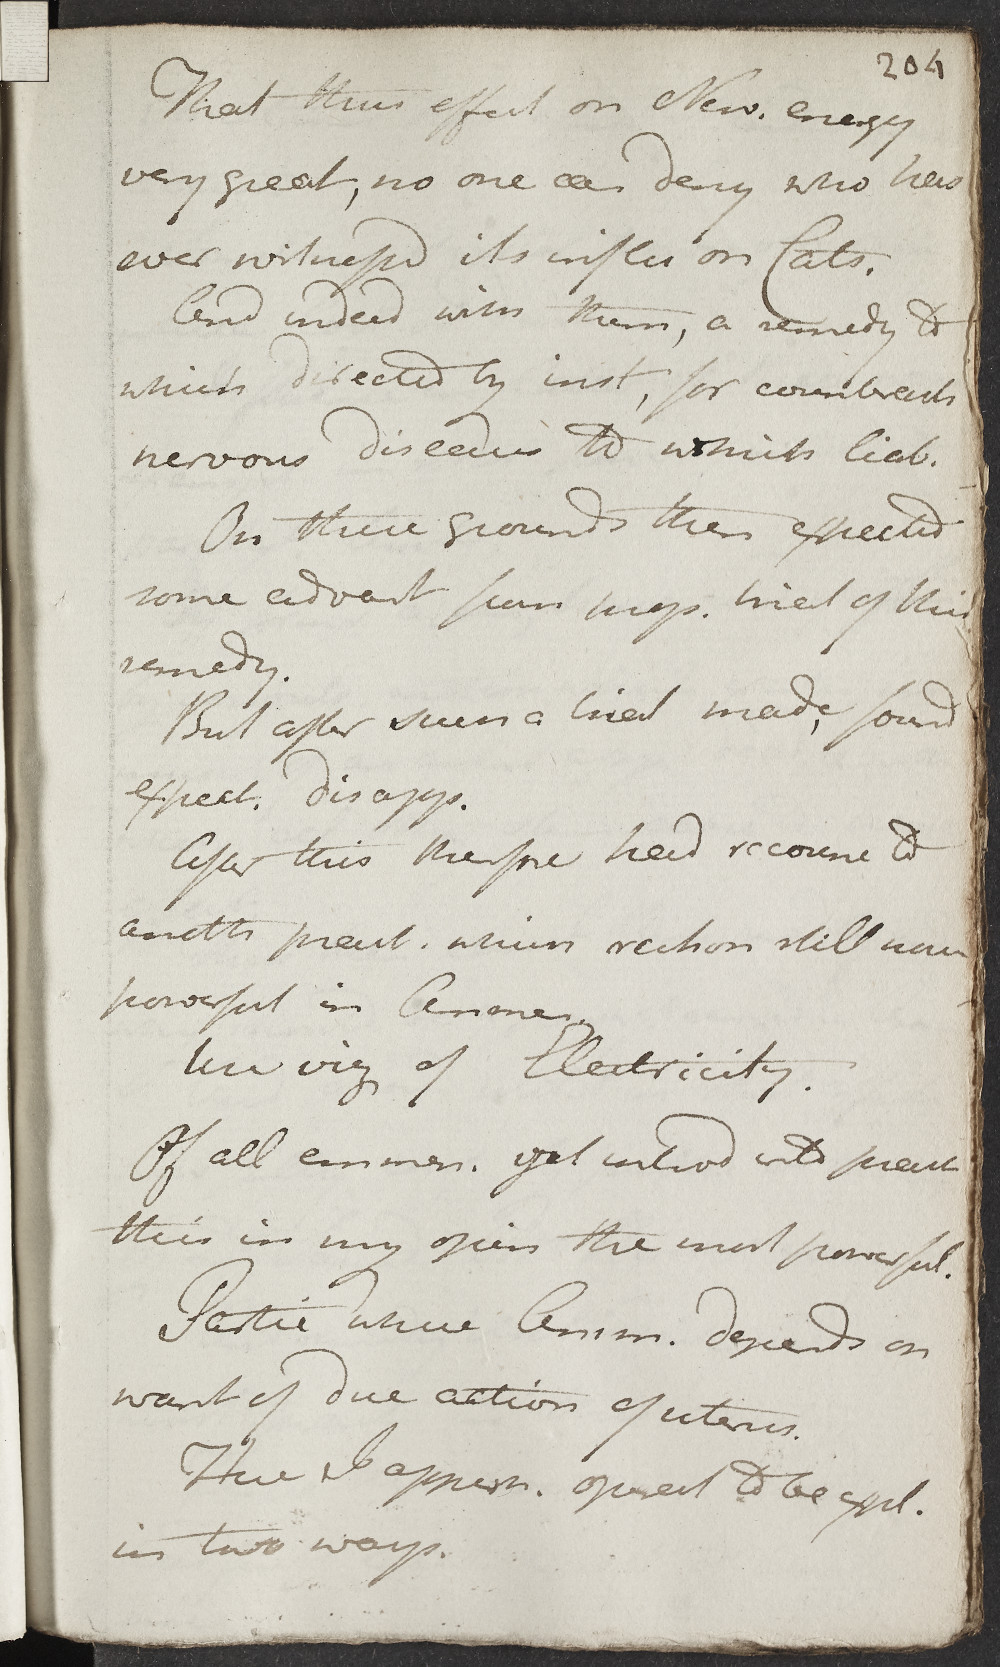 204
That thus effect on Nerv. energy
very great, no one can deny who has
ever witnessed its influ on Cats.
And indeed with them, a remedy to
which directed by inst, for counteract
nervous diseases to which liab.
On these grounds then expected
some advant from prop. trial of this
remedy.
But after such a trial made, found
expect. disapp.
After this therefore had recourse to
anoth pract. which reckon still more
powerful in Amenor.
Use viz of Electricity.
Of all emmen. yet introd into pract
this in my opin the most powerful.
Partic where Amen. depends on
want of due action of uterus.
Here I appreh. operat to be expl.
in two ways.